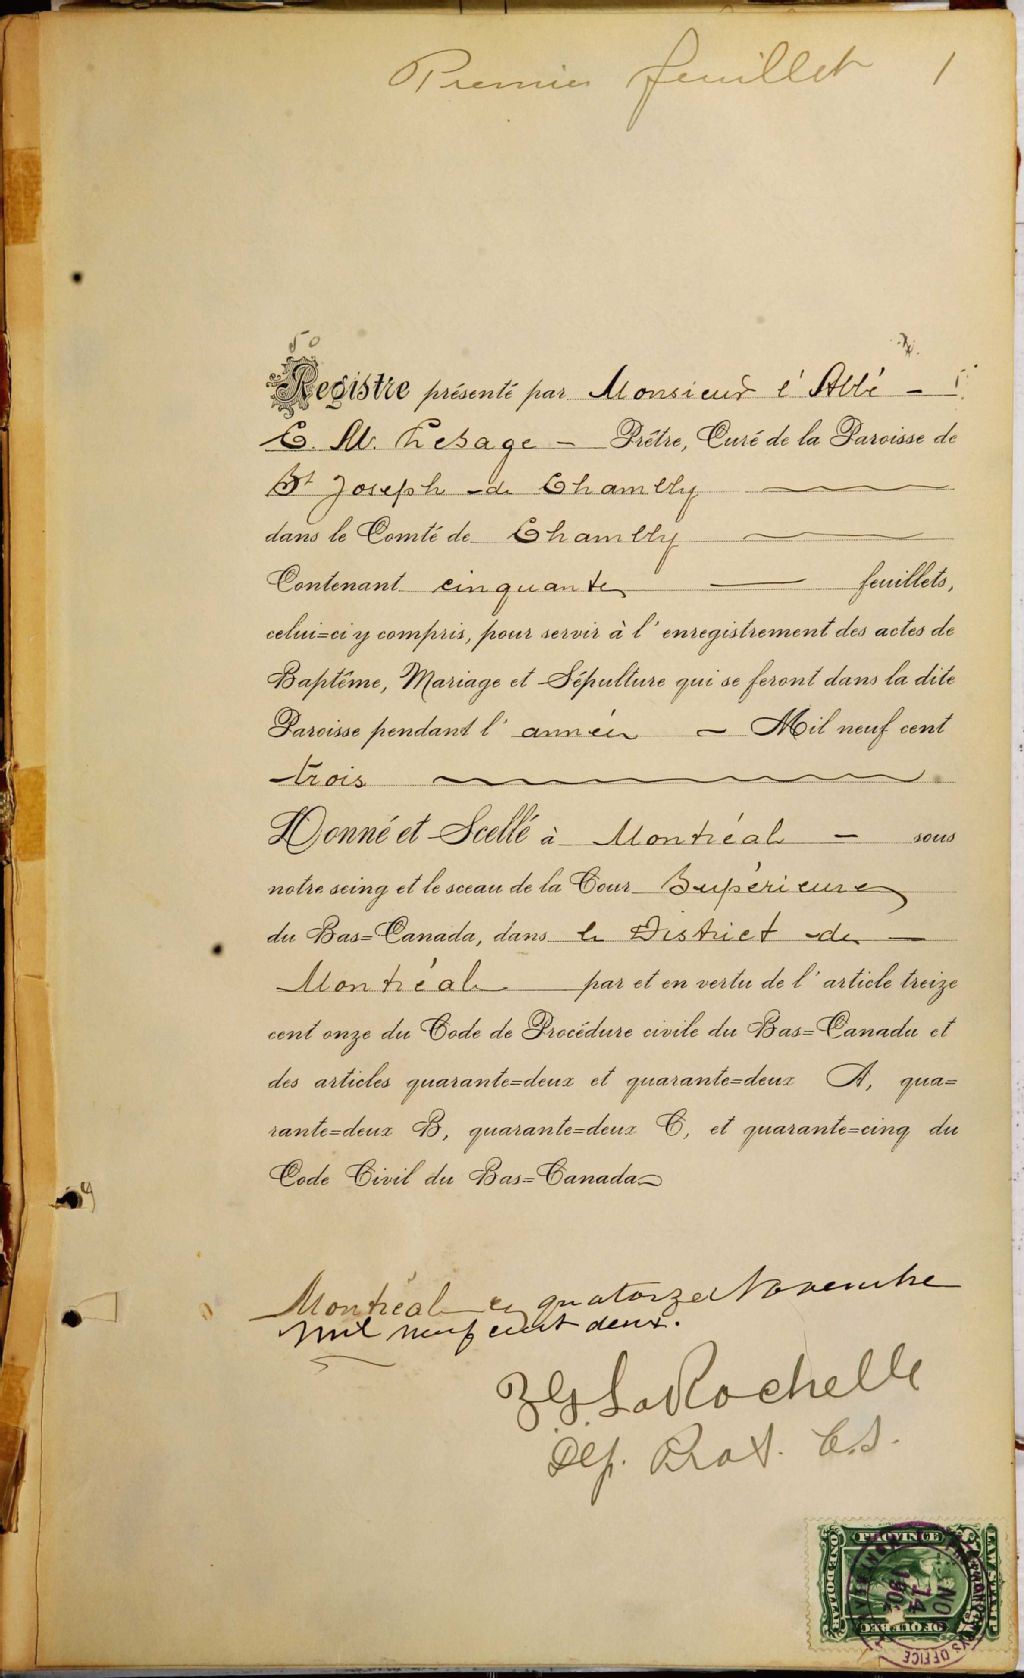 Premier feuillet 1
50
Registre présenté par Monsieur l'Abbé -
E. M. Lesage - Prêtre, Curé de la Paroisse de
St Joseph de Chambly
dans le Comté de Chambly
Contenant cinquante feuillets,
celui=ci y compris, pour servir à l'enregistrement des actes de
Baptême, Mariage et Sépulture qui se feront dans la dite
Paroisse pendant l'année - Mil neuf cent
trois
Donné et Scellé à Montréal - sous
notre seing et le sceau de la Cour Supérieure
du Bas=Canada, dans le District de -
Montréal par et en vertu de l'article treize
cent onze du Code de Procédure civile du Bas=Canada et
des articles quarante=deux et quarante=deux A, qua=
rante=deux B, quarante=deux C, et quarante=cinq du
Code Civil du Bas=Canada
Montréal le quatorze Novembre
mil neuf cent deux.
LaRochelle
Dep. Prot. C.S.
PROVINCE
OF QUEBEC
LAW STAMP
ONE DOLLAR
NOV
14
1902
OFFICE